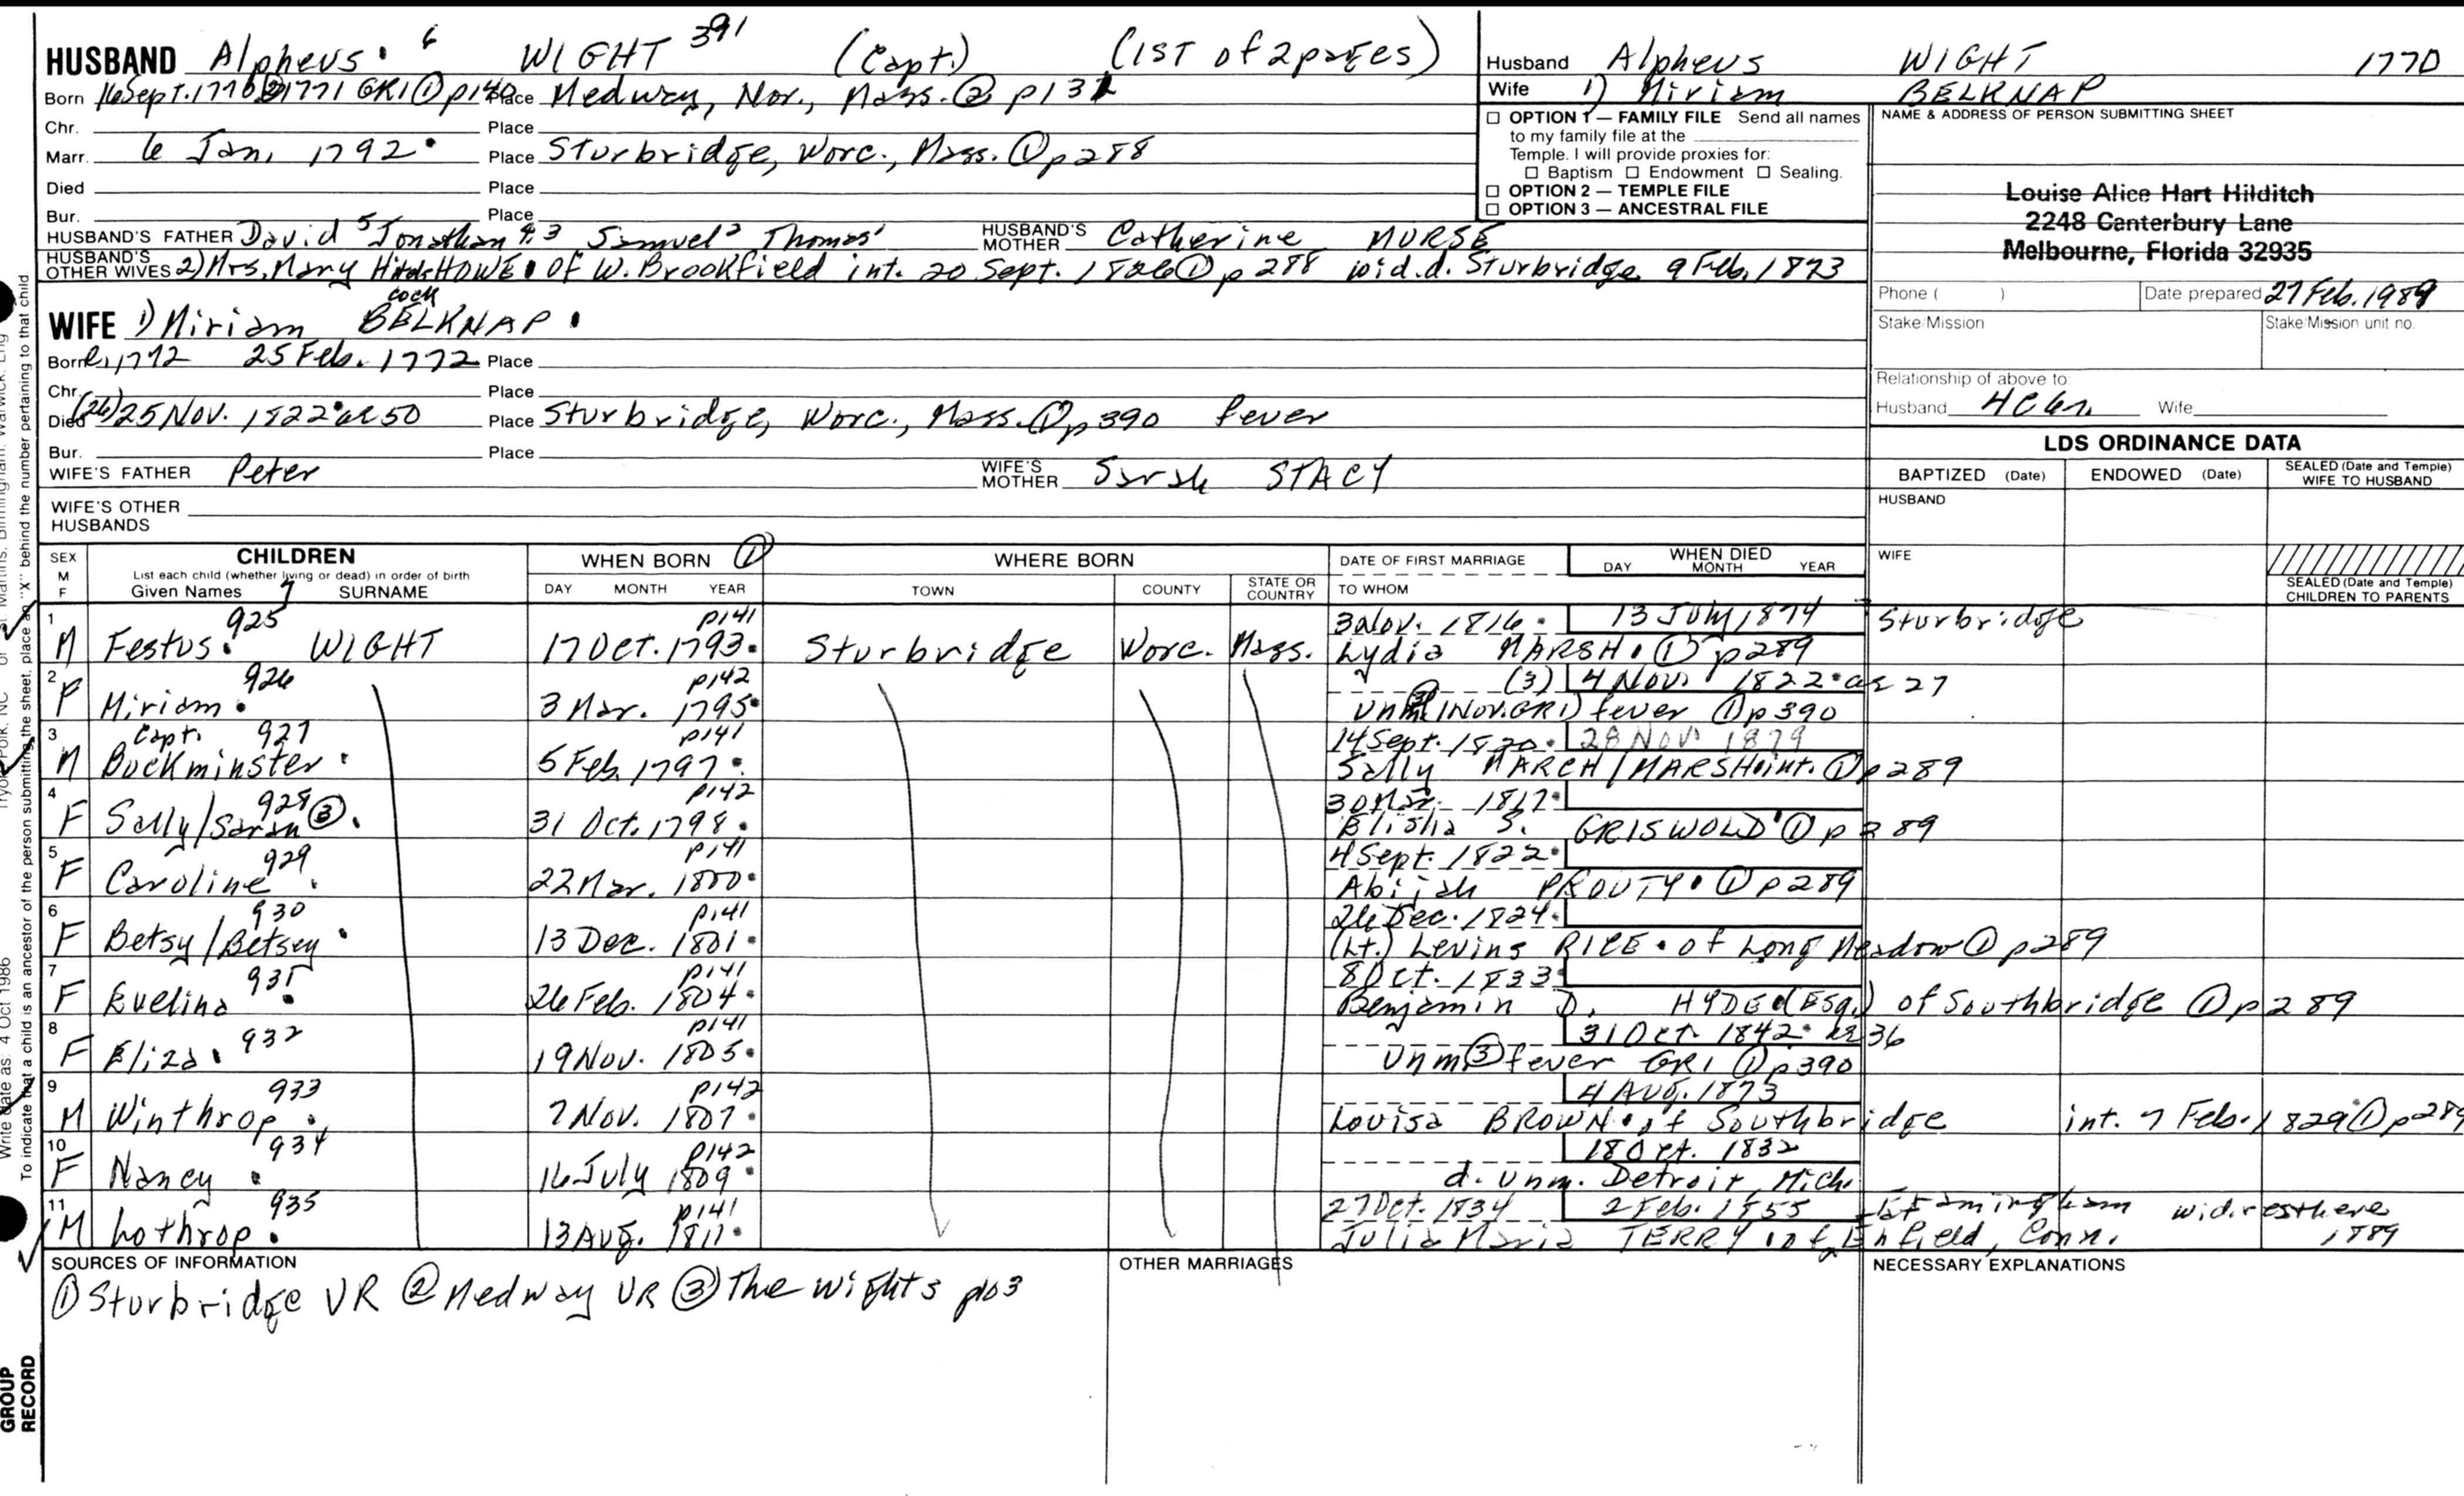 HUSBAND Alpheus. 6 WIGHT 391 (Capt.) (1ST of 2 pages)
Born 16 Sept. 1770 ③ 1771 GR1 ① p140 Place Medway, Nor., Mass. ② p132
Chr. Place
Marr. 6 Jan. 1792. Place Sturbridge, Worc., Mass. ① p288
Died Place
Bur. Place
HUSBAND'S FATHER David 5 Jonathan 4,3 Samuel 2 Thomas 1 HUSBAND'S MOTHER Catherine MORSE
HUSBAND'S OTHER WIVES 2) Mrs. Mary HOWE. of W. Brookfield int. 20 Sept. 1826 ① p288 wid. d. Sturbridge 9 Feb. 1873
cock
WIFE 1) Miriam BELKNAP.
Born 1772 25 Feb. 1772 Place
Chr. Place
Died (26) 25 Nov. 1822. ae 50 Place Sturbridge, Worc., Mass. ① p390 fever
Bur. Place
WIFE'S FATHER Peter WIFE'S MOTHER Sarah STACY
WIFE'S OTHER HUSBANDS
Husband Alpheus WIGHT 1770
Wife 1) Miriam BELKNAP
☐ OPTION 1 — FAMILY FILE Send all names
to my family file at the
Temple. I will provide proxies for:
☐ Baptism ☐ Endowment ☐ Sealing.
☐ OPTION 2 — TEMPLE FILE
☐ OPTION 3 — ANCESTRAL FILE
NAME & ADDRESS OF PERSON SUBMITTING SHEET
Louise Alice Hart Hilditch
2248 Canterbury Lane
Melbourne, Florida 32935
Phone ( ) Date prepared 27 Feb. 1989
Stake/Mission Stake/Mission unit no.
Relationship of above to
Husband 4C6n. Wife
LDS ORDINANCE DATA
BAPTIZED (Date) ENDOWED (Date) SEALED (Date and Temple) WIFE TO HUSBAND
HUSBAND
WIFE
SEALED (Date and Temple) CHILDREN TO PARENTS
SEX M F CHILDREN WHEN BORN ① WHERE BORN DATE OF FIRST MARRIAGE WHEN DIED
List each child (whether living or dead) in order of birth
Given Names 7 SURNAME DAY MONTH YEAR TOWN COUNTY STATE OR COUNTRY TO WHOM DAY MONTH YEAR
1 925 p141 3 Nov. 1816. 13 July 1874 Sturbridge
M Festus. WIGHT 17 Oct. 1793. Sturbridge Worc. Mass. Lydia MARSH. ① p289
2 926 p142 (3) 4 Nov. 1822. ae 27
F Miriam. 3 Mar. 1795. unm ③ (1 Nov. GR1) fever ① p390
3 Capt. 927 p141 14 Sept. 1820. 28 Nov 1879
M Buckminster. 5 Feb. 1797. Sally MARCH/MARSH. int. ① p289
4 928 p142 30 Mar. 1817.
F Sally/Sarah ③. 31 Oct. 1798. Elisha S. GRISWOLD. ① p289
5 929 p141 4 Sept. 1822.
F Caroline. 22 Mar. 1800. Abijah PROUTY. ① p289
6 930 p141 26 Dec. 1824.
F Betsy/Betsey. 13 Dec. 1801. (Lt.) Levins RICE. of Long Meadow ① p289
7 931 p141 8 Oct. 1833.
F Evelina. 26 Feb. 1804. Benjamin D. HYDE. (ESq.) of Southbridge ① p289
8 932 p141 31 Oct. 1842. ae 36
F Eliza. 19 Nov. 1805. Unm ③ fever GR1 ① p390
9 933 p142 4 Aug. 1873
M Winthrop. 7 Nov. 1807. Louisa BROWN. of Southbridge int. 7 Feb. 1829 ① p289
10 934 p142 18 Oct. 1832
F Nancy. 16 July 1809. d. unm. Detroit, Mich.
11 935 p141 27 Oct. 1834 2 Feb. 1855 Framingham wid. res there
M Lothrop. 13 Aug. 1811. Julia Maria TERRY. of Enfield, Conn. 1889
SOURCES OF INFORMATION OTHER MARRIAGES NECESSARY EXPLANATIONS
① Sturbridge VR ② Medway VR ③ The Wights p103
To indicate that a child is an ancestor of the person submitting the sheet, place an "X" behind the number pertaining to that child
Write date as: 4 Oct 1986
GROUP
RECORD